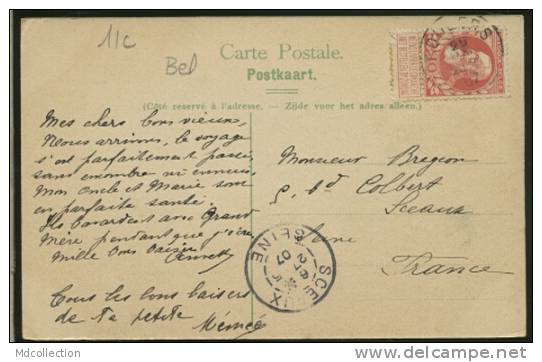 11c
Bel
Carte Postale.
Postkaart.
(Côté reservé à l'adresse. — Zijde voor het adres alleen.)
Mes chers bons vieux,
Nous arrivons, le voyage
s'est parfaitement passé
sans encombre ni ennuis.
Mon Oncle et Marie sont
en parfaite santé.
Ils bavardent avec Grand
Mère pendant que j'écris
Mille bons baisers
Tous les bons baisers
de Ta petite
Mémée
Monsieur Bregeon
5, bd Colbert
Sceaux
Seine
France
SCEAUX
SEINE
07
MDCollection
www.delcampe.net